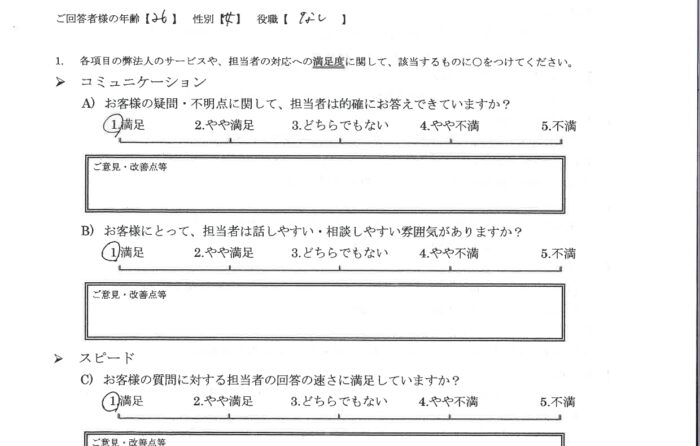 ご回答者様の年齢【26】 性別【女】 役職【 なし 】
1. 各項目の弊法人のサービスや、担当者の対応への満足度に関して、該当するものに○をつけてください。
➤ コミュニケーション
A) お客様の疑問・不明点に関して、担当者は的確にお答えできていますか？
1.満足 2.やや満足 3.どちらでもない 4.やや不満 5.不満
ご意見・改善点等
B) お客様にとって、担当者は話しやすい・相談しやすい雰囲気がありますか？
1.満足 2.やや満足 3.どちらでもない 4.やや不満 5.不満
ご意見・改善点等
➤ スピード
C) お客様の質問に対する担当者の回答の速さに満足していますか？
1.満足 2.やや満足 3.どちらでもない 4.やや不満 5.不満
ご意見・改善点等